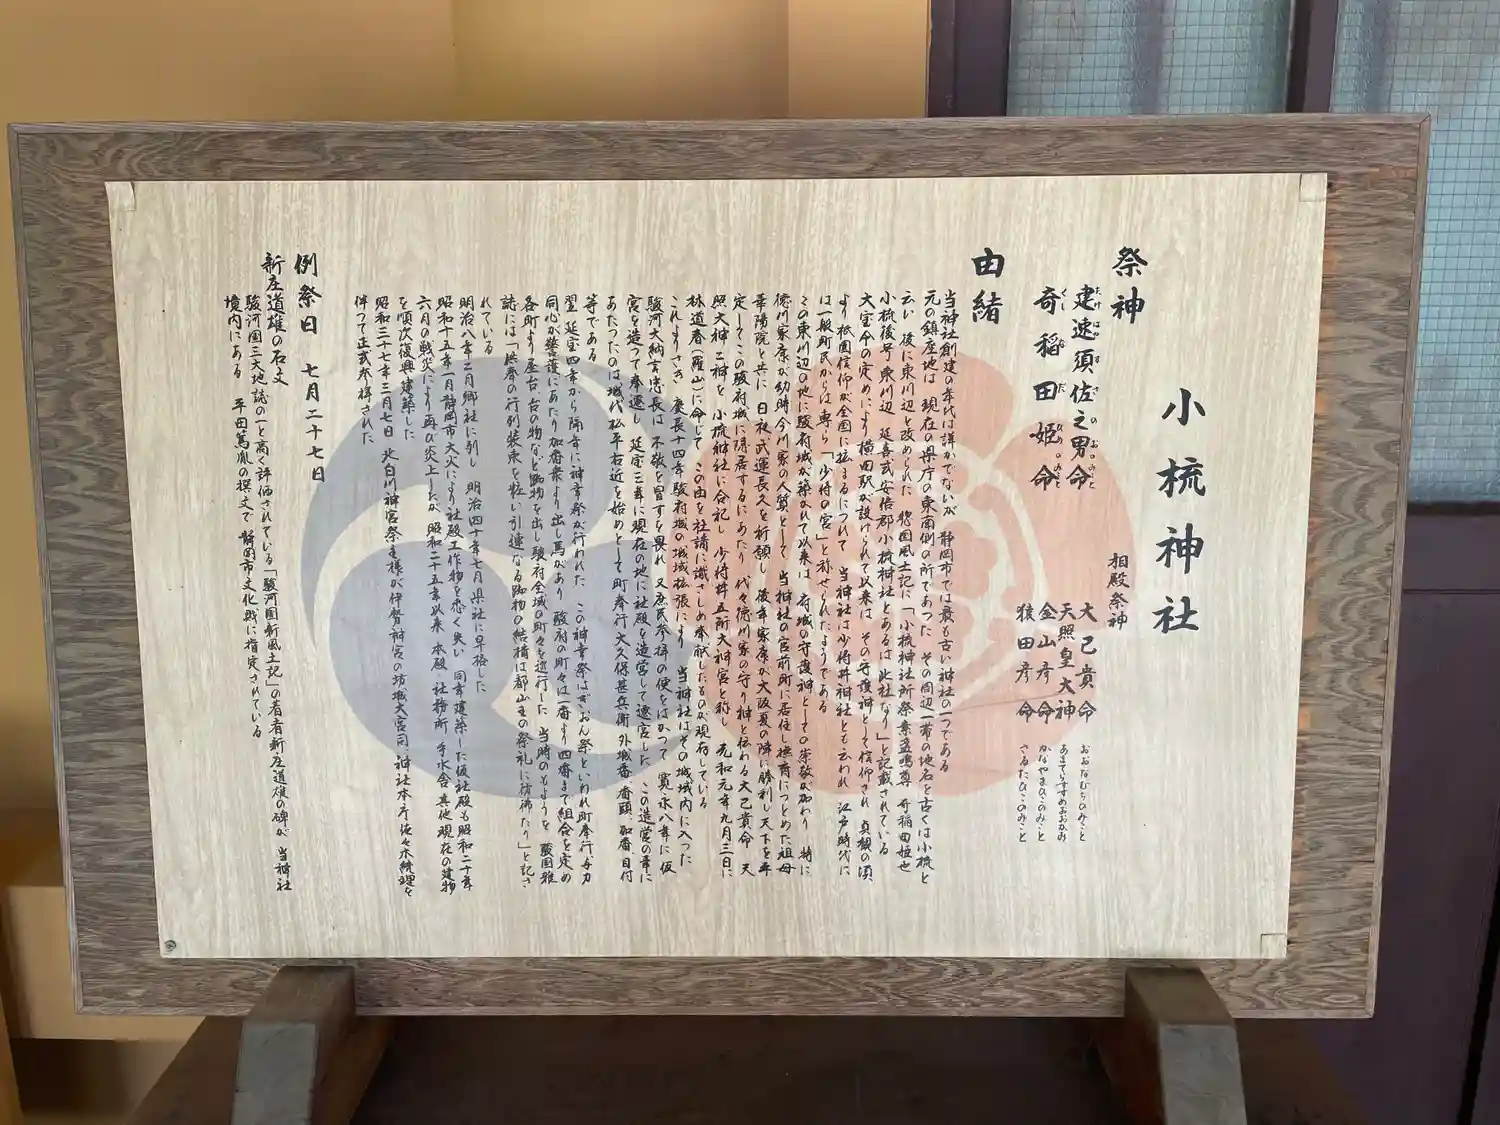 小梳神社
祭神
建速須佐之男命
たけはやすさのおのみこと
奇稲田姫命
くしなだひめのみこと
相殿祭神
大己貴命 おおなむちのみこと
天照皇大神 あまてらすすめおおかみ
金山彦命 かなやまひこのみこと
猿田彦命 さるたひこのみこと
由緒
当神社創建の年代は詳かでないが 静岡市では最も古い神社の一つである
元の鎮座地は 現在の県庁の東南側の所であった その周辺一帯の地名を古くは小梳と
云い 後に東川辺と改められた 惣国風土記に「小梳神社所祭素盞嗚尊 奇稲田姫也
小梳後号東川辺 延喜式安倍郡小梳神社とあるは此社なり」と記載されている
大宝令の定めにより横田駅が設けられて以来は その守護神として信仰され 貞観の頃
より祇園信仰が全国に拡まるにつれて 当神社は少将井神社とも云われ 江戸時代に
は一般町民からは専ら「少将の宮」と称せられたようである
この東川辺の地に駿府城が築かれて以来は 府城の守護神としての崇敬が加わり 特に
徳川家康が幼時今川家の人質として 当神社の宮前町に居住し撫育につとめた祖母
華陽院と共に 日夜武運長久を祈願し 後年家康が大阪夏の陣に勝利し天下を平
定してこの駿府城に隠居するにあたり 代々徳川家の守り神と伝わる大己貴命 天
照大神二神を 小梳神社に合祀し 少将井五所大神宮と称し 元和元年九月三日に
林道春(羅山)に命じて この由を社請に識さしめ奉献したものが現存している
これよりさき 慶長十四年駿府城の城域拡張により 当神社はその城域内に入った
駿河大納言忠長は 不敬を冒すを畏れ 又庶民参拝の便をはかって 寛永八年に仮
宮を造って奉遷し 延宝三年に現在の地に社殿を造営して遷宮した この造営の事に
あたったのは城代松平右近を始めとして町奉行大久保甚兵衛外城番 番頭 加番 目付
等である
翌 延宝四年から隔年に神幸祭が行われた この神幸祭はぎおん祭といわれ町奉行与力
同心が警護にあたり加番衆より出し馬があり 駿府の町々は一番より四番まで組合を定め
各町より屋台 台の物など踟物を出し駿府全域の町々を巡行した 当時のもようを 駿国雅
誌には「供奉の行列装束を粧い引連なる踟物の結構は都山王の祭礼に彷彿たり」と記さ
れている
明治八年二月郷社に列し 明治四十年七月県社に昇格した
昭和十五年一月静岡市大火により社殿工作物を悉く失い 同年建築した仮社殿も昭和二十年
六月の戦災により再び炎上したが 昭和二十五年以来 本殿 社務所 手水舎 其他現在の建物
を順次復興建築した
昭和三十七年三月七日 北白川神宮祭主様が伊勢神宮の坊城大宮司 神社本庁佐々木統理を
伴って正式参拝された
例祭日 七月二十七日
新庄道雄の石文
駿河国三大地誌の一と高く評価されている「駿河国新風土記」の著者新庄道雄の碑が 当神社
境内にある 平田篤胤の撰文で 静岡市文化財に指定されている